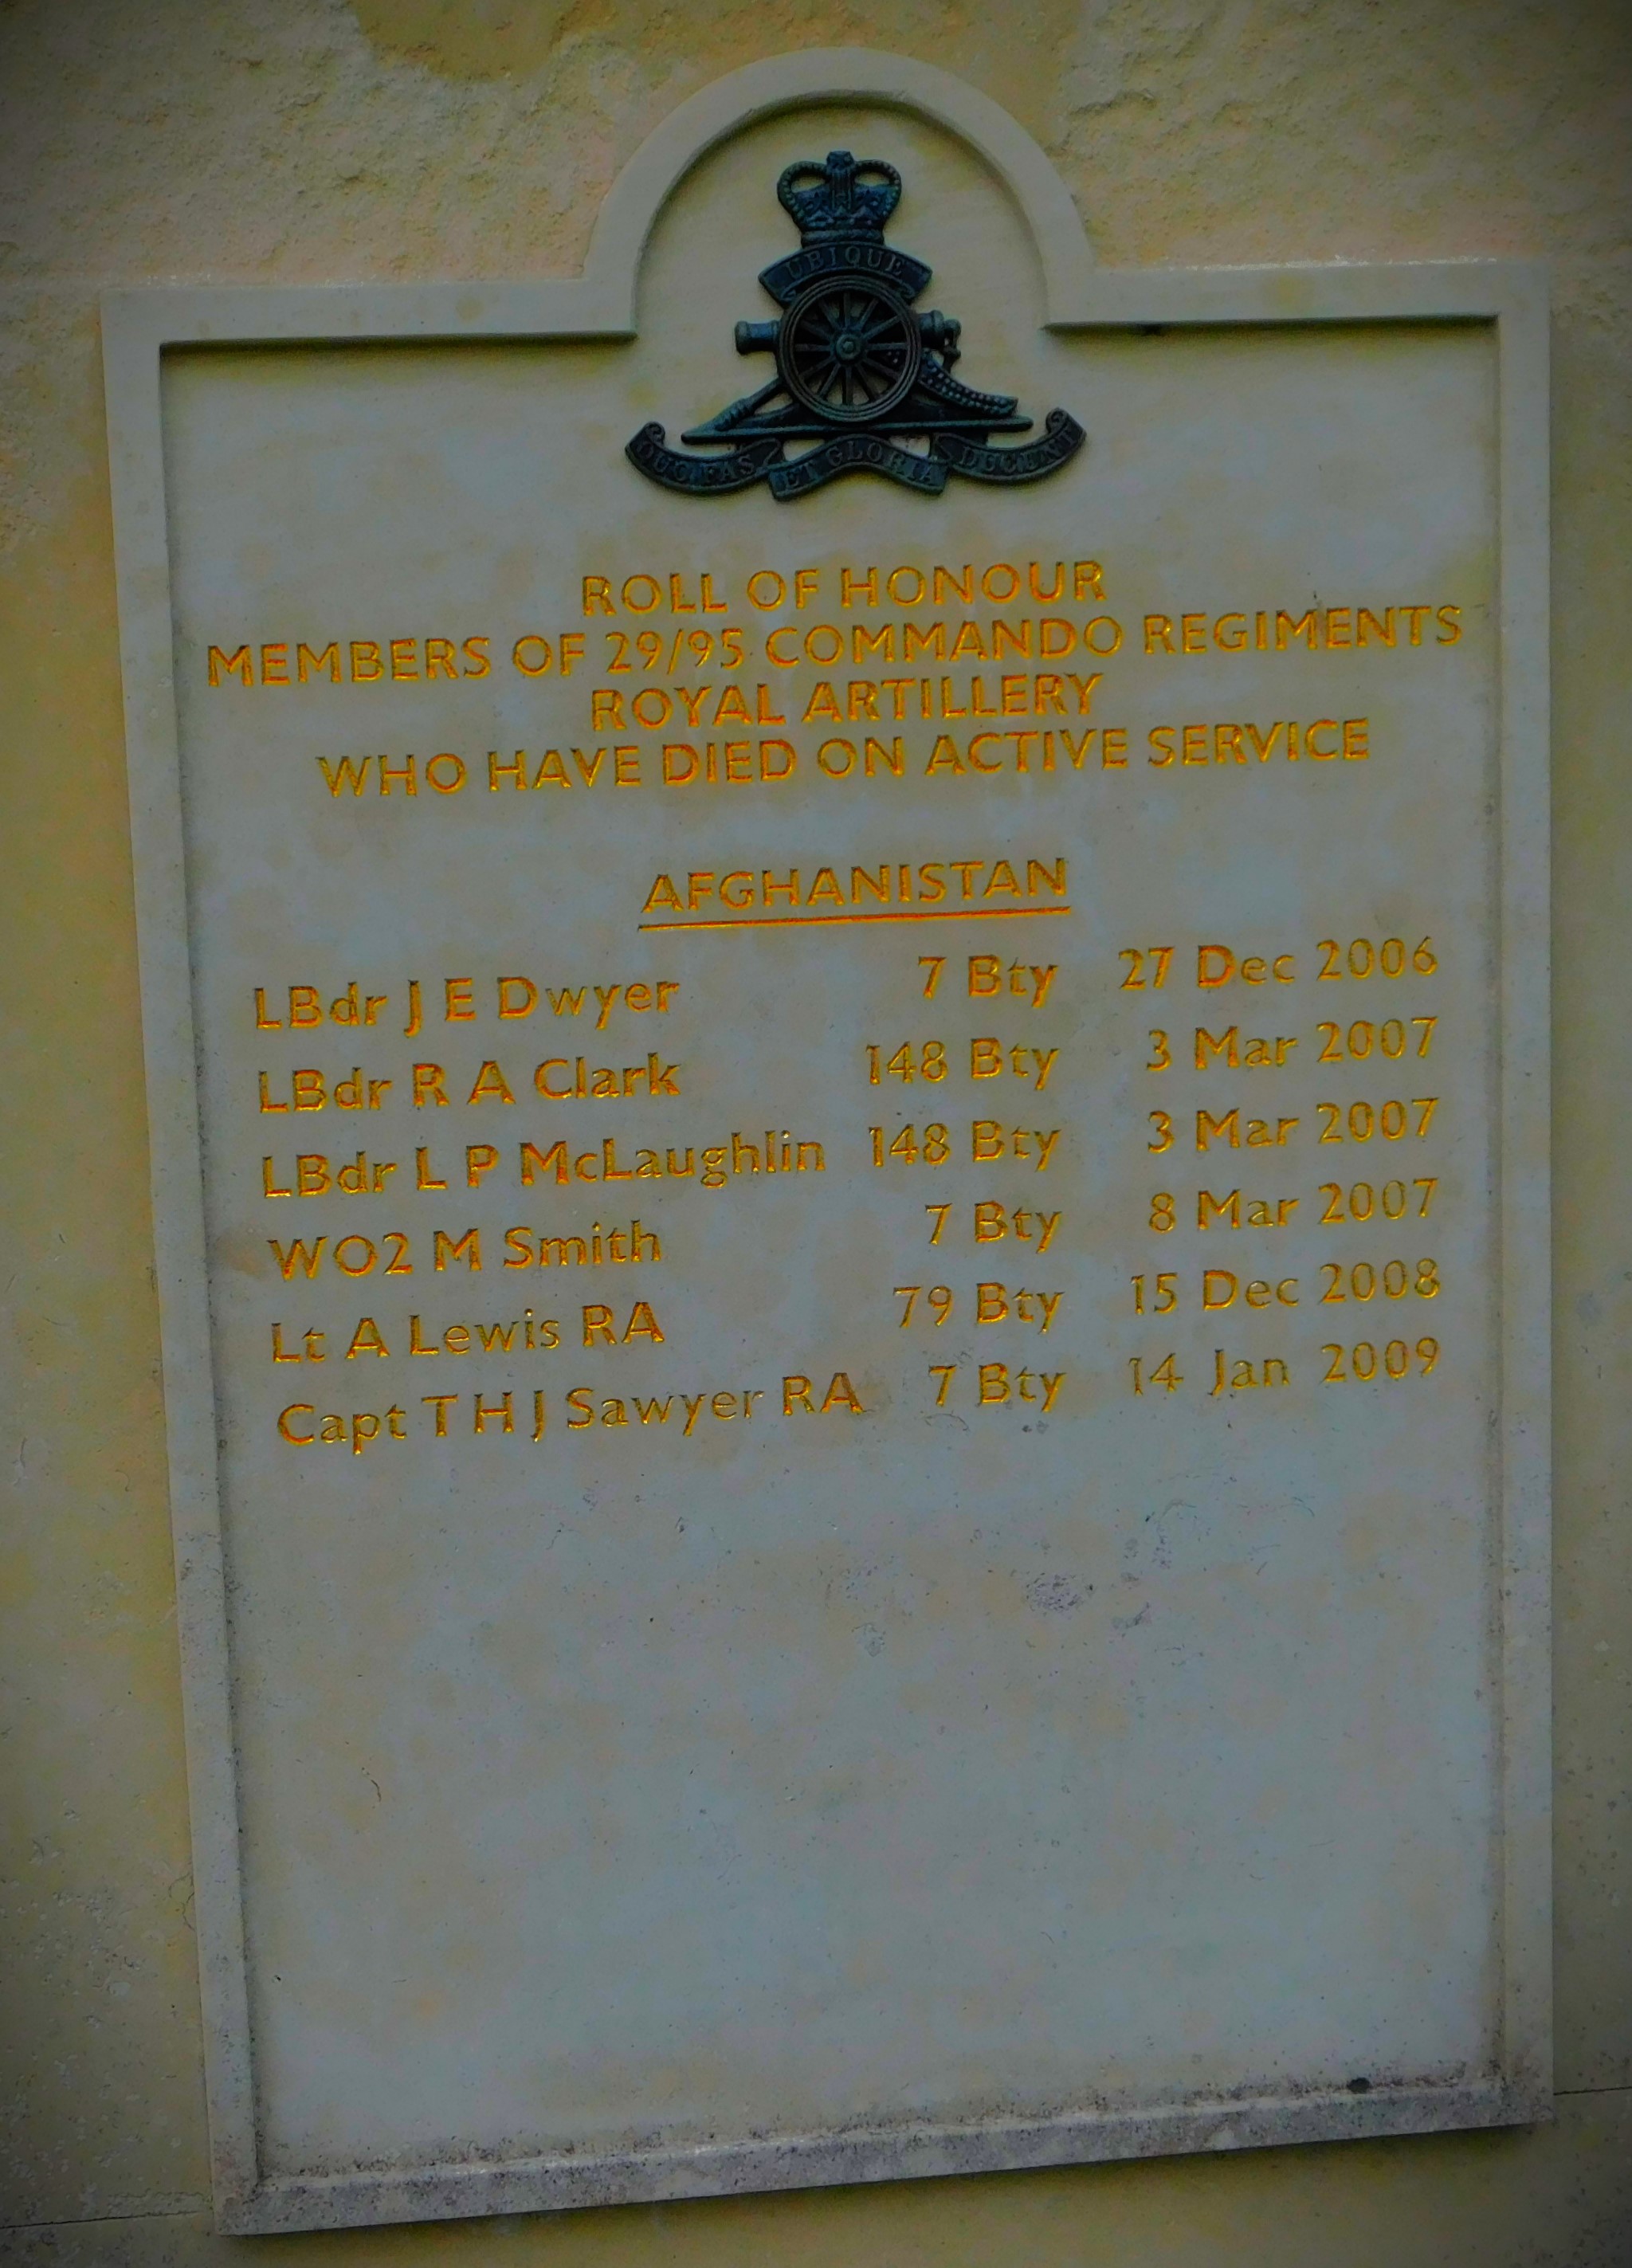 UBIQUE
QUO FAS ET GLORIA DUCUNT
ROLL OF HONOUR
MEMBERS OF 29/95 COMMANDO REGIMENTS
ROYAL ARTILLERY
WHO HAVE DIED ON ACTIVE SERVICE
AFGHANISTAN
LBdr J E Dwyer 7 Bty 27 Dec 2006
LBdr R A Clark 148 Bty 3 Mar 2007
LBdr L P McLaughlin 148 Bty 3 Mar 2007
WO2 M Smith 7 Bty 8 Mar 2007
Lt A Lewis RA 79 Bty 15 Dec 2008
Capt T H J Sawyer RA 7 Bty 14 Jan 2009